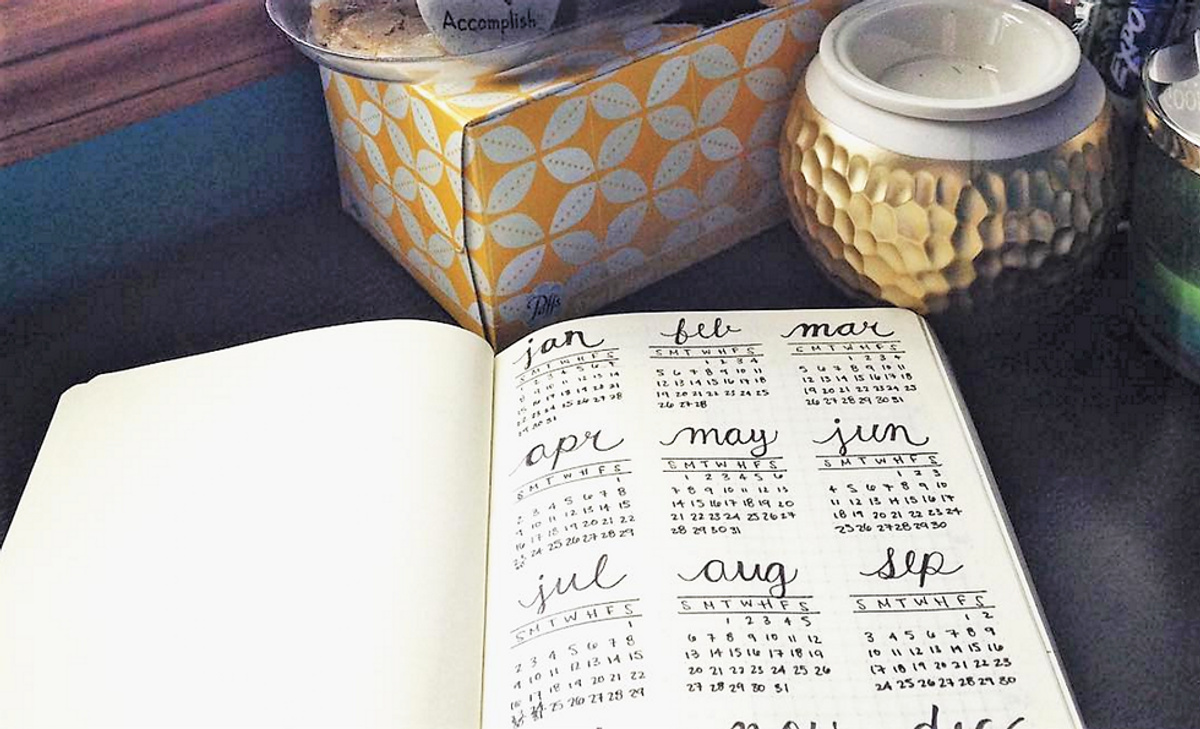 Accomplish
EXPO
Puffs
jan
S M T W H F S
1 2 3 4 5 6 7
8 9 10 11 12 13 14
15 16 17 18 19 20 21
22 23 24 25 26 27 28
29 30 31
feb
S M T W H F S
1 2 3 4
5 6 7 8 9 10 11
12 13 14 15 16 17 18
19 20 21 22 23 24 25
26 27 28
mar
S M T W H F S
1 2 3 4
5 6 7 8 9 10 11
12 13 14 15 16 17 18
19 20 21 22 23 24 25
26 27 28 29 30 31
apr
S M T W H F S
1
2 3 4 5 6 7 8
9 10 11 12 13 14 15
16 17 18 19 20 21 22
23 24 25 26 27 28 29
30
may
S M T W H F S
1 2 3 4 5 6
7 8 9 10 11 12 13
14 15 16 17 18 19 20
21 22 23 24 25 26 27
28 29 30 31
jun
S M T W H F S
1 2 3
4 5 6 7 8 9 10
11 12 13 14 15 16 17
18 19 20 21 22 23 24
25 26 27 28 29 30
jul
S M T W H F S
1
2 3 4 5 6 7 8
9 10 11 12 13 14 15
16 17 18 19 20 21 22
25 26 27 28 29
aug
S M T W H F S
1 2 3 4 5
6 7 8 9 10 11 12
13 14 15 16 17 18 19
20 21 22 23 24 25 26
27 28 29 30 31
sep
S M T W H F S
1 2
3 4 5 6 7 8 9
10 11 12 13 14 15 16
17 18 19 20 21 22 23
24 25 26 27 28 29 30
nov
dec